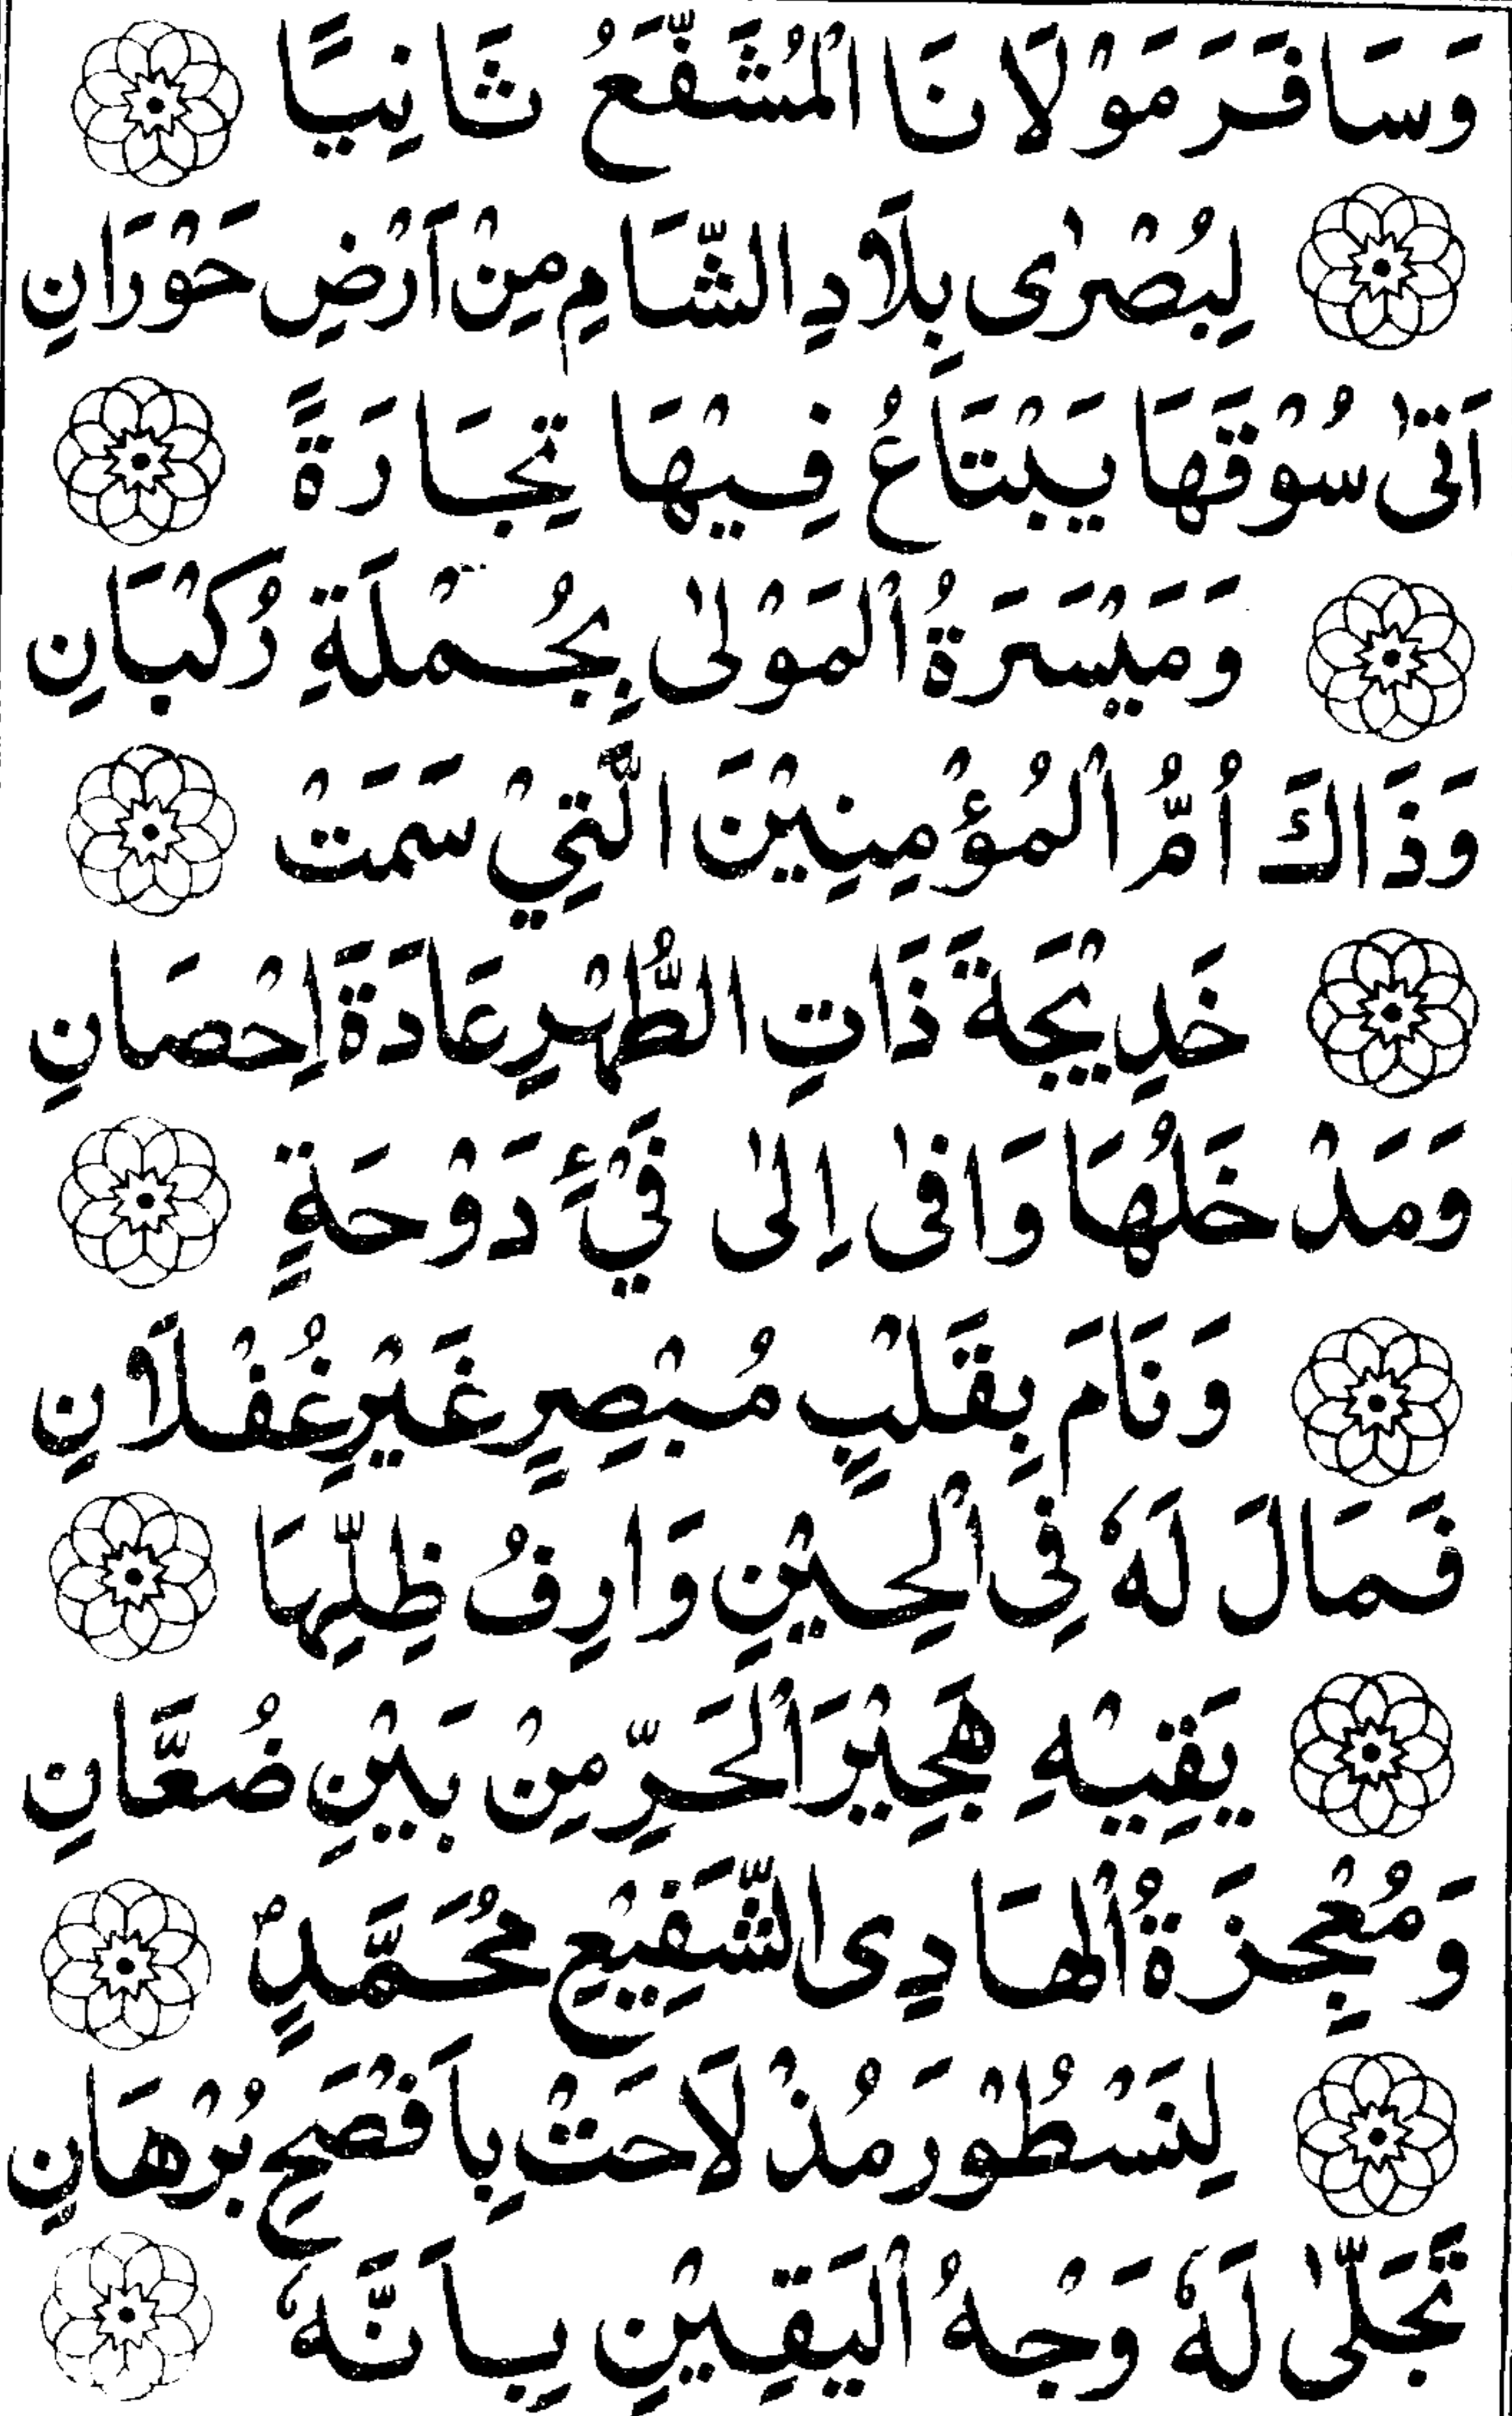 وَسَافَرَ مَوْلَانَا الْمُشَفَّعُ ثَانِيًا
لِبُصْرٰى بِلَادِ الشَّامِ مِنْ اَرْضِ حَوْرَانِ
اَتٰى سُوْقَهَا يَبْتَاعُ فِيْهَا تِجَارَةً
وَمَيْسَرَةُ الْمَوْلٰى بِجُمْلَةِ رُكْبَانِ
وَذَاكَ اُمُّ الْمُؤْمِنِيْنَ الَّتِيْ سَمَتْ
خَدِيْجَةَ ذَاتِ الطُّهْرِ عَادَةَ اِحْصَانِ
وَمَدْ خَلُهَا وَافٰى اِلٰى فَيْءِ دَوْحَةٍ
وَنَامَ بِقَلْبٍ مُبْصِرٍ غَيْرِ غُفْلَانِ
فَمَالَ لَهٗ فِي الْحِيْنِ وَارِفُ ظِلِّهَا
يَقِيْهِ هَجِيْرَ الْحَرِّ مِنْ بَيْنِ ضُعَّانِ
وَمُعْجِزَةُ الْهَادِى الشَّفِيْعِ مُحَمَّدٍ
لِنَسْطُوْرَ مُذْ لَاحَتْ بِاَفْصَحِ بُرْهَانِ
تَجَلّٰى لَهٗ وَجْهُ الْيَقِيْنِ بِاَنَّهٗ